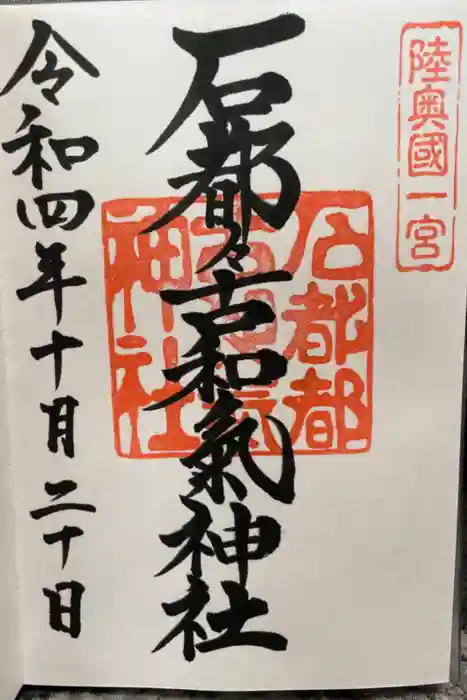 陸奥國一宮
石都々古和氣神社
石都都
古和氣
神社
令和四年十月二十日